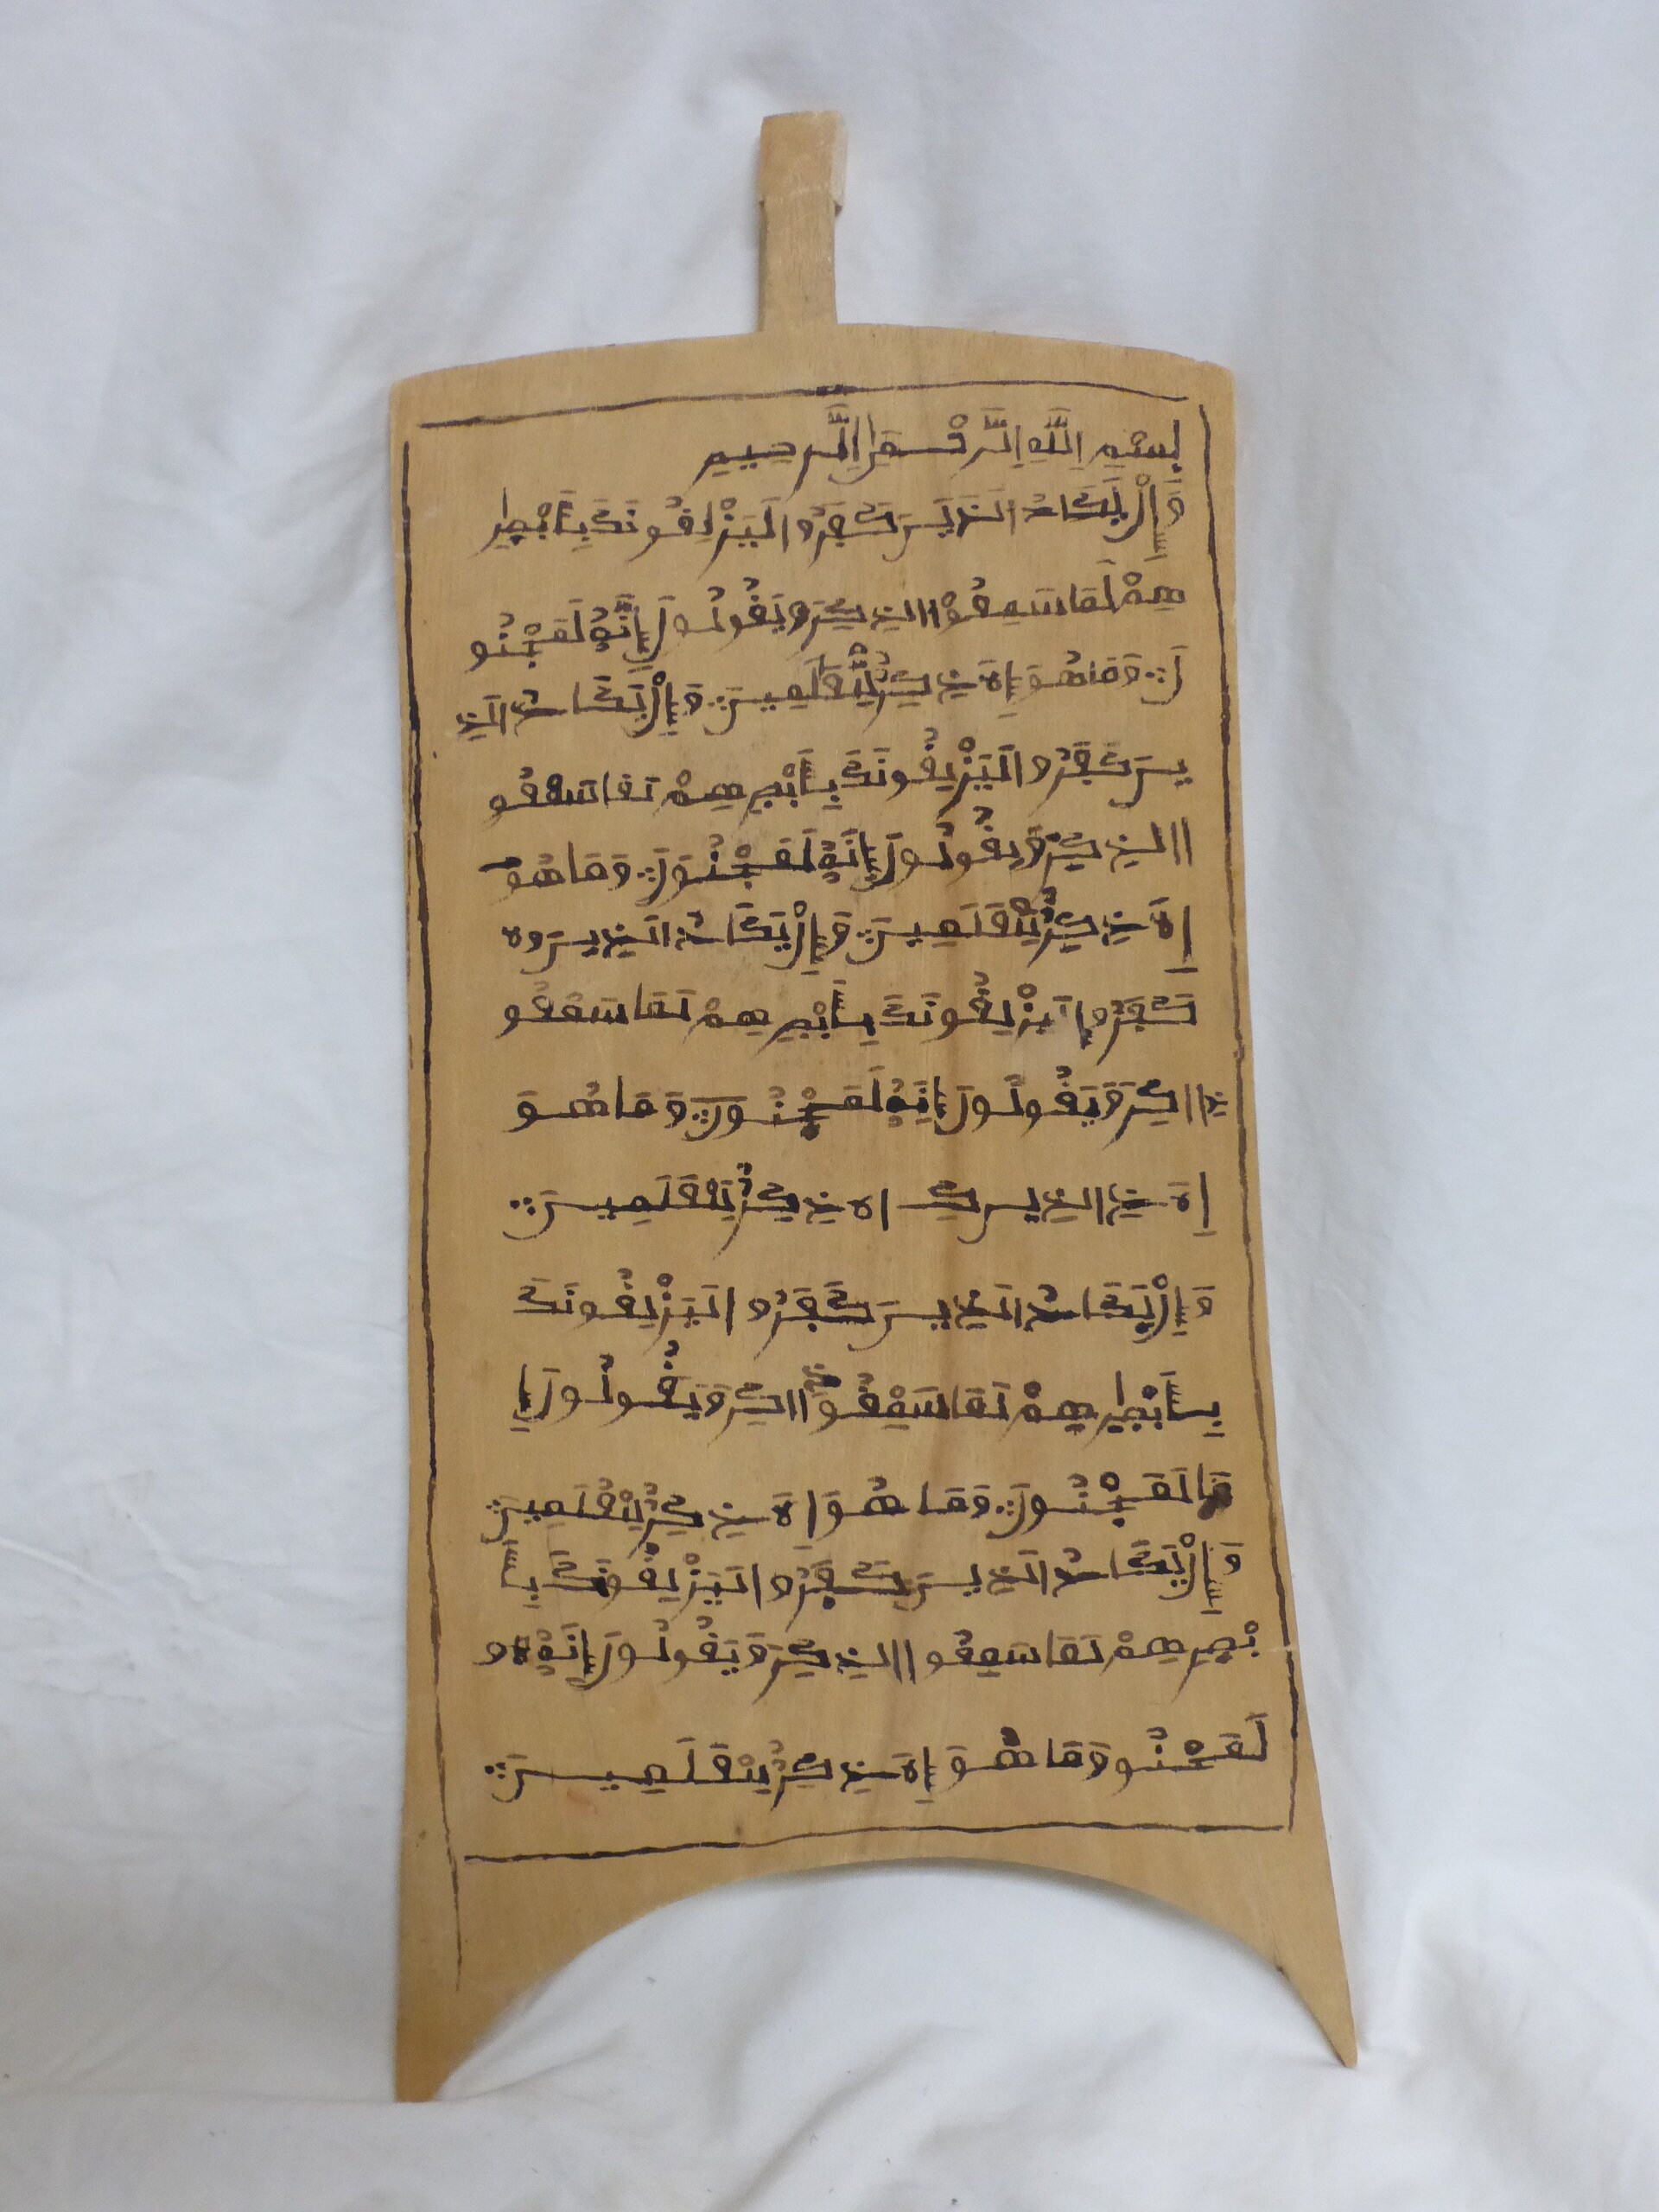 بِسْمِ اِللَّهِ اِلرَّحْمَٰنِ اِلرَّحِيمِ
وَإِنْ يَّكَادُ الذِيرَ كَفَرُوا لَيَزْلِفُونَكَ بِأَبْصِٰرِ
هِمْ لَمَّا سَمِعُوْا الذِكْرَ وَيَقُولُونَ إِنَّهُ لَمَجْنُو
نٌ وَمَا هُوَ إِلاَّ ذِكْرٌ لِّلْعَٰلَمِينَ وَإِنْ يَّكَادُ الذِ
ينَ كَفَرُوا لَيَزْلِفُونَكَ بِأَبْصِرِهِمْ لَمَا سَمْعُو
ا الذِكْرَ وَيِقُولُونَ إِنَّهُ لَمَجْنُونَ وَمَا هُوَ
إِلاَّ ذِكْرٌ لِلْعَلَمِينَ وَإِنْ يَّكَادُ الذِينَ وه
كَفَرُوا لَيَزْلِفُونَكَ بِأَبْصِرِهِمْ لَمَا سَمْعُو
ذ ا الكِرَ وَيَقُولُونَ إِنَّهُ لَمَجْنُونَ وَمَا هُوَ
إِلاَّ ذِ الذِيرِكِ الا ذِكْرٌ لِلْعَلَمِينَ
وَإِنْ يَّكَادُ الذِينَ كَفَرُوا لَيَزْلِفُونَكَ
بِأَبْصِٰرِهِمْ لَمَا سَمِعُوا الذِكْرَ وَيَقُولُونَ إِ
لَمَجْنُونَ وَمَا هُوَ إِلاَّ ذِكْرٌ لِلْعَلَمِينَ
وَإِنْ يَّكَادُ الذِينَ كَفَرُوا لَيَزْلِفُونَكَ بِأَ
بْصِرِهِمْ لَمَا سَمِعُوا الذِكْرَ وَيَقُولُونَ إِنَّهُ
لَمَجْنُو وَمَا هُوَ إِلاَّ ذِكْرٌ لِلْعَلَمِينَ